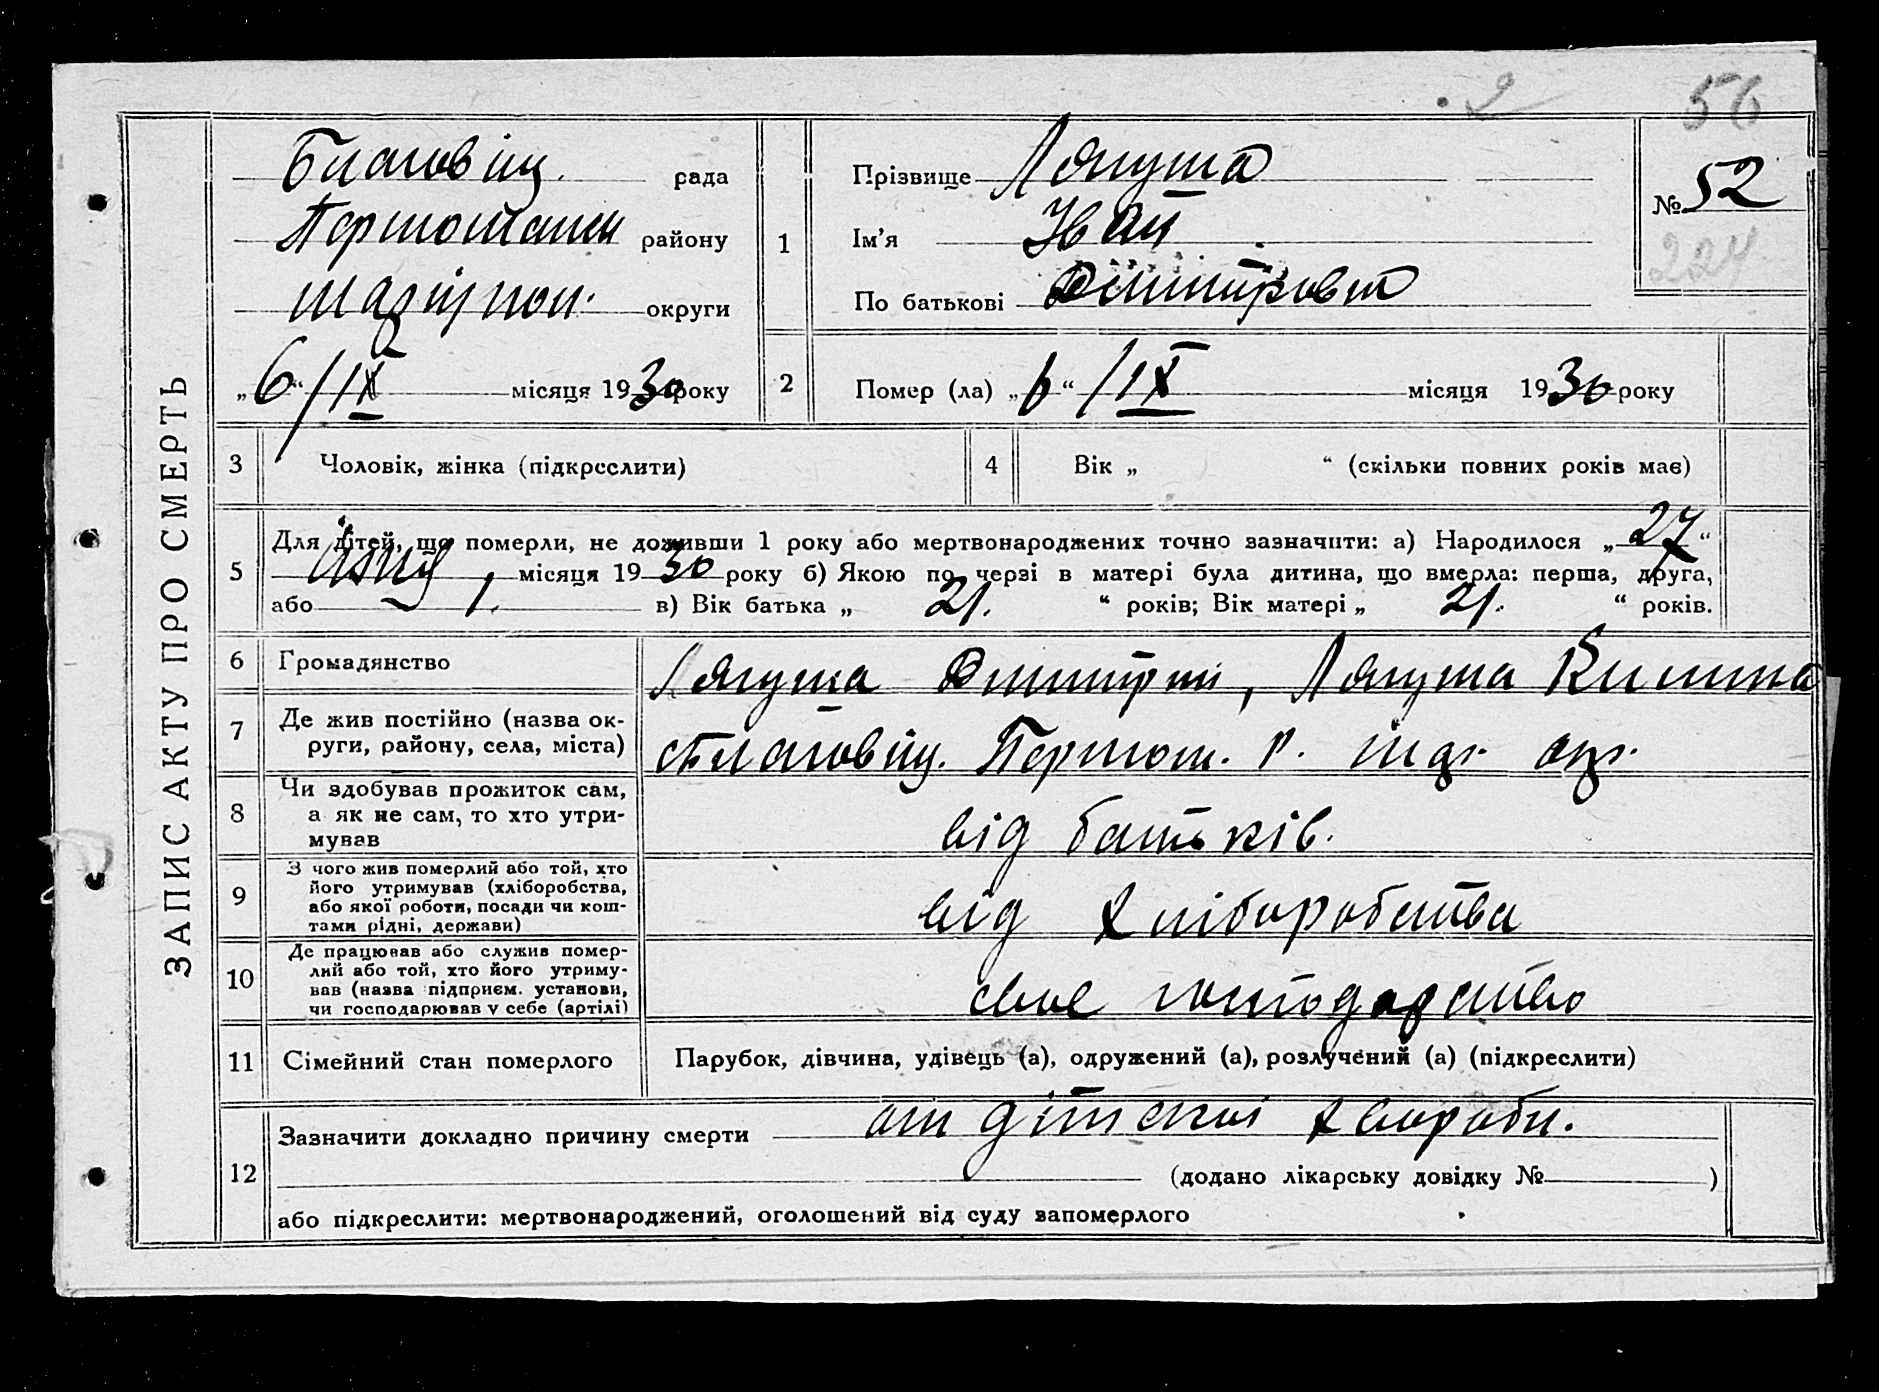 2 56
ЗАПИС АКТУ ПРО СМЕРТЬ
Благовіщ. рада
Першотанси району
округи
„6“/IX місяця 1930 року
1
Прізвище Лягуша
Ім'я Іван
По батькові Дмитрович
№ 52
224
2
Помер (ла) „6“ /IX місяця 1930 року
3 Чоловік, жінка (підкреслити)
4 Вік „ “ (скільки повних років має)
5 Для дітей, що померли, не доживши 1 року або мертвонароджених точно зазначити: а) Народилося „27“
місяця 1930 року б) Якою по черзі в матері була дитина, що вмерла: перша, друга,
або 1. в) Вік батька „ 21. “ років; Вік матері „ 21. “ років.
6 Громадянство
Лягуша Дмитрий, Лягуша
7 Де жив постійно (назва ок-
руги, району, села, міста)
с Благовіщ. Першот. р. окр.
8 Чи здобував прожиток сам,
а як не сам, то хто утри-
мував
від батьків.
9 З чого жив померлий або той, хто
його утримував (хліборобства,
або якої роботи, посади чи кош-
тами рідні, держави)
від хліборобства
10 Де працював або служив помер-
лий або той, хто його утриму-
вав (назва підприєм. установи,
чи господарював у себе (артілі)
своє господарство
11 Сімейний стан померлого
Парубок, дівчина, удівець (а), одружений (а), розлучений (а) (підкреслити)
12 Зазначити докладно причину смерти от дітскої хвороби.
(додано лікарську довідку № )
або підкреслити: мертвонароджений, оголошений від суду запомерлого